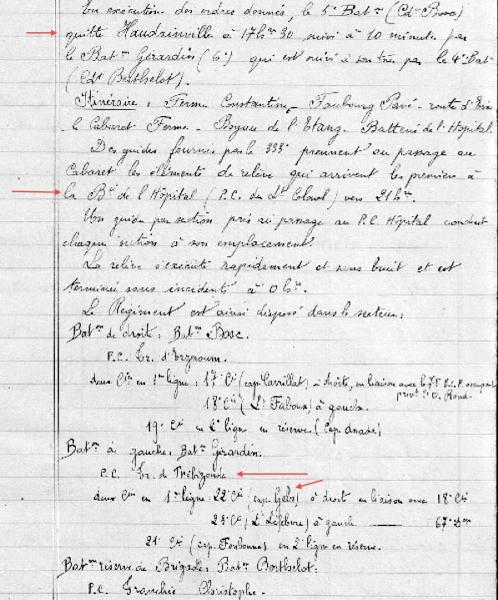 En exécution des ordres donnés, le 5e Baton (Ct Bosc)
quitte Haudainville à 17h 30 suivi à 10 minutes par
le Baton Girardin (6e) qui est suivi à son tour par le 4e Bat
(Ct Berthelot).
Itinéraire : Ferme Constantine - Faubourg Pavé - route d'Etain
le Cabaret Ferme - Boyau de l'Etang - Batterie de l'Hôpital.
Des guides fournis par le 333e prennent au passage au
Cabaret les éléments de relève qui arrivent les premiers à
la Bie de l'Hôpital (P.C. du Lt Colonel) vers 21h.
Un guide par section pris au passage au P.C. Hôpital conduit
chaque section à son emplacement.
La relève s'exécute rapidement et sans bruit et est
terminée sans incidents à 0h.
Le Régiment est ainsi disposé dans le secteur :
Baton de droite : Baton Bosc.
P.C. Tr. d'Erzeroum.
deux Cies en 1re ligne : 17e Cie (cap. Carrillat) à droite, en liaison avec le
18e Cie (Lt Faboux) à gauche.
19e Cie en 2e ligne en réserve (Cap.
Baton à gauche : Baton Girardin.
P.C. Tr. de Trébizonde
deux Cies en 1re ligne : 22e Cie (cap. Gelis) à droite en liaison avec 18e Cie
23e Cie (Lt Lefebvre) à gauche 67e Don
21e Cie (cap. Fonbonne) en 2e ligne en réserve.
Baton réserve de Brigade : Baton Berthelot :
P.C. Tranchée Christophe.